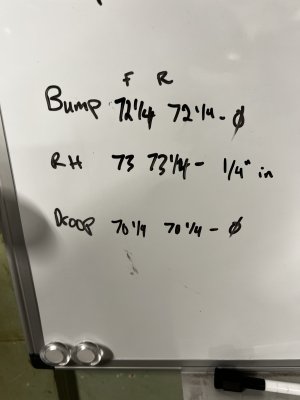 F R
Bump 72 1/4 72 1/4 - ø
RH 73 73 1/4 - 1/4" in
Droop 70 1/4 70 1/4 - ø